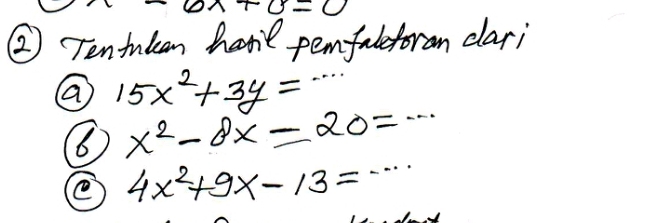 ② Tentukan hasil pemfaktoran dari
ⓐ 15x²+3y = ....
ⓑ x² - 8x - 20 = ...
ⓒ 4x²+9x - 13 = ....